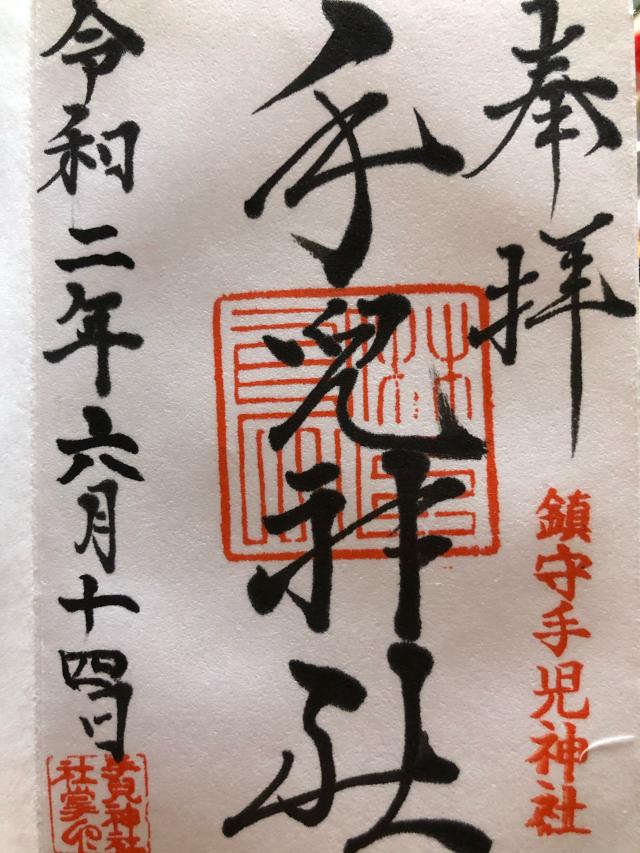 奉拝
鎮守手児神社
手児神社
令和二年六月十四日